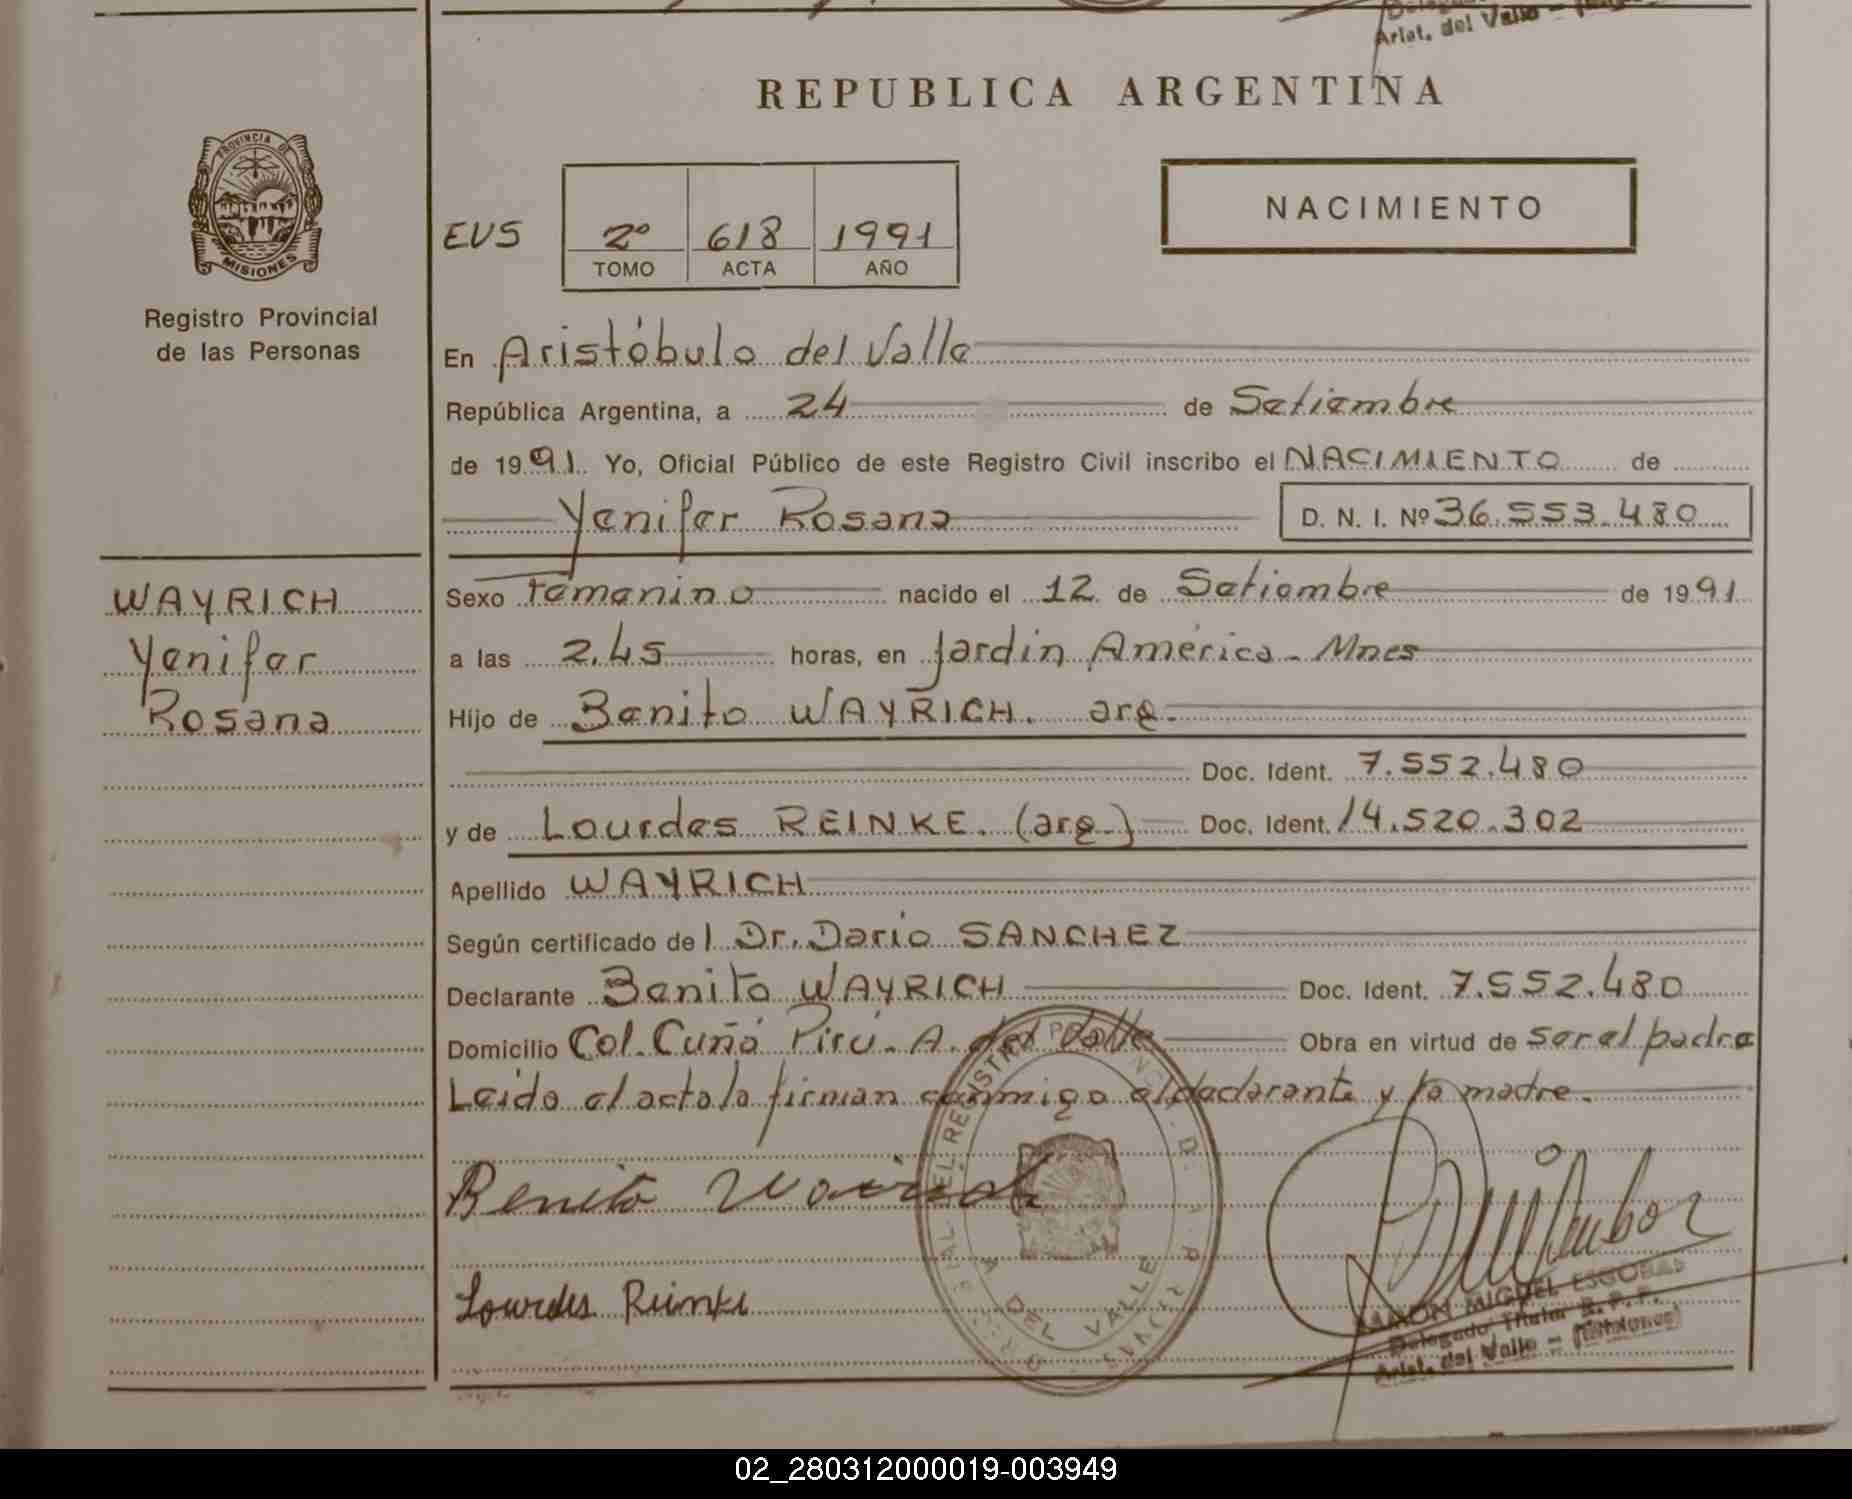 Arist. del Valle
REPUBLICA ARGENTINA
PROVINCIA DE
MISIONES
Registro Provincial
de las Personas
EVS 2º 618 1991
TOMO ACTA AÑO
NACIMIENTO
En Aristóbulo del Valle
República Argentina, a 24 de Setiembre
de 1991. Yo, Oficial Público de este Registro Civil inscribo el NACIMIENTO de
Yenifer Rosana D. N. I. Nº 36.553.480
WAYRICH
Yenifer
Rosana
Sexo femenino nacido el 12 de Setiembre de 1991
a las 2.45 horas, en Jardin América - Mnes
Hijo de Benito WAYRICH. arg.
Doc. Ident. 7.552.480
y de Lourdes REINKE. (arg.) Doc. Ident. 14.520.302
Apellido WAYRICH
Según certificado del Dr. Dario SANCHEZ
Declarante Benito WAYRICH Doc. Ident. 7.552.480
Domicilio Col. Cuñá Pirú. A. del Valle Obra en virtud de ser el padre
Leida el acta la firman conmigo el declarante y la madre.
Benito
Lourdes Reinke
DEL VALLE
RAMON MIGUEL ESCOBAR
Delegado Titular R. P. P.
Arist. del Valle - (Misiones)
02_280312000019-003949